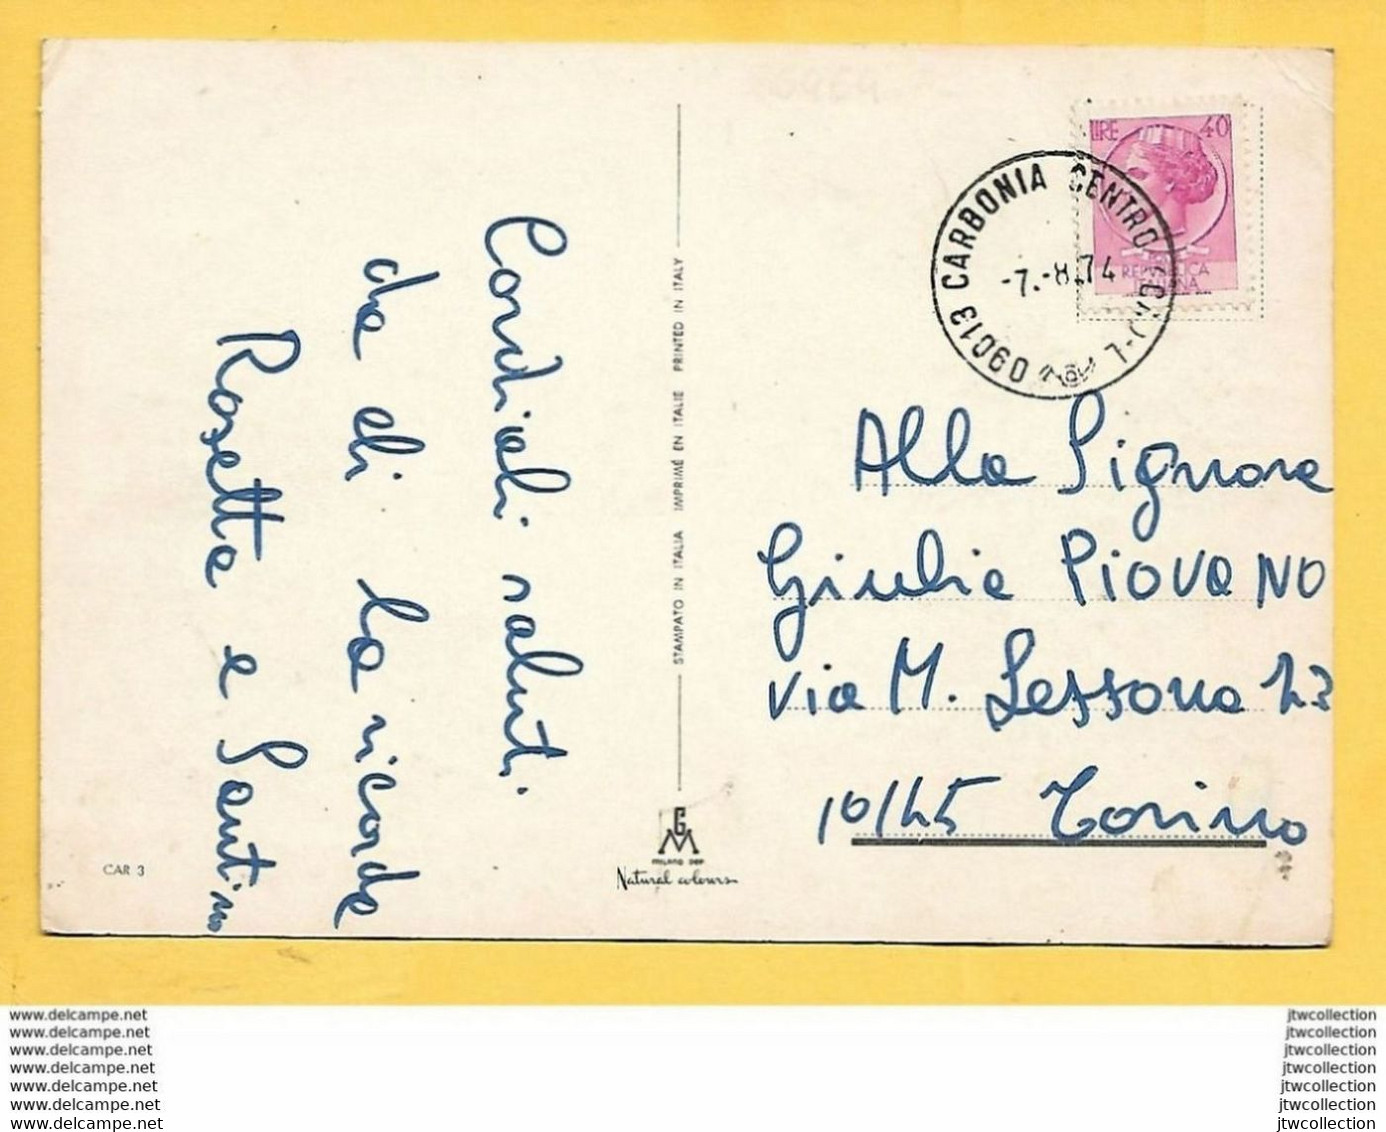 Cordiali saluti.
da chi la ricorda
Rosetta e Santino
CAR 3
STAMPATO IN ITALIA IMPRIMÉ EN ITALIE PRINTED IN ITALY
GM
MILANO DEP
Natural colours
LIRE 40
REPUBBLICA
ITALIANA
09013 CARBONIA CENTRO
-7.-8.74
Alla Signora
Giulia PIOVANO
via M. Lessona 23
10145 Torino
www.delcampe.net
www.delcampe.net
www.delcampe.net
www.delcampe.net
www.delcampe.net
www.delcampe.net
www.delcampe.net
jtwcollection
jtwcollection
jtwcollection
jtwcollection
jtwcollection
jtwcollection
jtwcollection